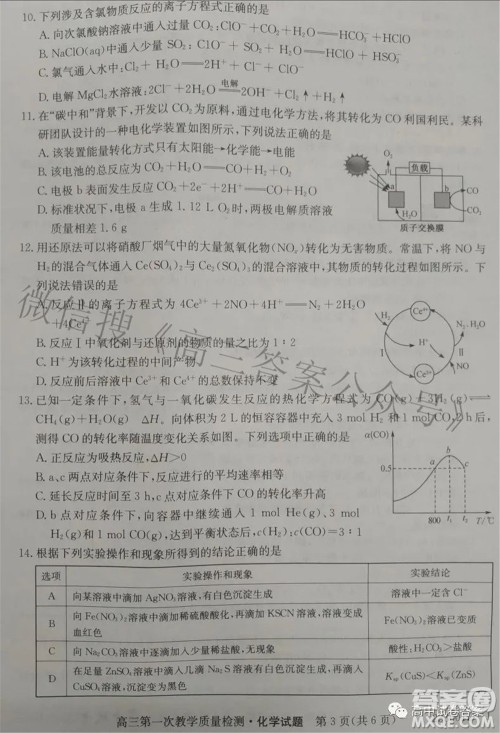 10.下列涉及含氯物质反应的离子方程式正确的是
A.向次氯酸钠溶液中通入过量 CO₂:ClO⁻+CO₂+H₂O══HCO₃⁻+HClO
B.NaClO(aq)中通入少量 SO₂: ClO⁻+SO₂+H₂O══HClO+HSO₃⁻
C.氯气通入水中:Cl₂+H₂O══2H⁺+Cl⁻+ClO⁻
D.电解 MgCl₂ 水溶液:2Cl⁻+2H₂O══电解══2OH⁻+Cl₂↑+H₂↑
11.在“碳中和”背景下,开发以 CO₂ 为原料,通过电化学方法,将其转化为 CO 利国利民。某科
研团队设计的一种电化学装置如图所示,下列说法正确的是
A.该装置能量转化方式只有太阳能→化学能→电能
B.该电池的总反应为 CO₂+H₂O══CO+H₂+O₂
C.电极 b 表面发生 CO₂+2e⁻+2H⁺══CO+H₂O
D.标准状况下,电极 a 生成 1.12 L O₂ 时,两极电解质溶液
质量相差 1.6 g
O₂
负载
a
b
CO
CO₂
H₂O
质子交换膜
12.用还原法可以将硝酸厂烟气中的大量氮氧化物(NOₓ)转化为无害物质。常温下,将 NO 与
H₂的混合气体通入 Ce(SO₄)₂与 Ce₂(SO₄)₃的混合溶液中,其物质的转化过程如图所示。下
列说法错误的是
A.反应Ⅱ的离子方程式为 4Ce³⁺+2NO+4H⁺══N₂+2H₂O
+4Ce⁴⁺
B.反应Ⅰ中氧化剂与还原剂的物质的量之比为 1∶2
C.H⁺为该转化过程的中间产物
D.反应前后溶液中 Ce³⁺和 Ce⁴⁺的总数保持不变
H₂
Ce⁴⁺
N₂、H₂O
Ⅰ
H⁺
Ⅱ
NO
Ce³⁺
13.已知一定条件下,氢气与一氧化碳发生反应的热化学方程式为 CO(g)+3H₂(g)⇌
CH₄(g)+H₂O(g) ΔH。向体积为 2 L 的恒容容器中充入 3 mol H₂ 和 1 mol CO,2 h后,
测得 CO 的转化率随温度变化关系如图。下列选项中正确的是
A.正反应为吸热反应,ΔH>0
B.a、c 两点对应条件下,反应进行的平均速率相等
C.延长反应时间至 3 h,c 点对应条件下 CO 的转化率升高
D.b 点对应条件下,向容器中继续通入 1 mol He(g)、3 mol
H₂(g)和 1 mol CO(g),达到平衡状态后,c(H₂)∶c(CO)=3∶1
α(CO)
0.5
a
b
c
800
t₁
t₂
T/℃
14.根据下列实验操作和现象所得到的结论正确的是
选项
实验操作和现象
实验结论
A
向某溶液中滴加 AgNO₃ 溶液,有白色沉淀生成
溶液中一定含 Cl⁻
B
向 Fe(NO₃)₂溶液中滴加稀硫酸酸化,再滴加 KSCN 溶液,溶液变成
血红色
Fe(NO₃)₂溶液已变质
C
向 Na₂CO₃ 溶液中逐滴加入少量稀盐酸,无现象
酸性:H₂CO₃>盐酸
D
在足量 ZnSO₄ 溶液中滴入几滴 Na₂S 溶液有白色沉淀生成,再滴入
CuSO₄ 溶液,沉淀变为黑色
Ksp(CuS)<Ksp(ZnS)
高三第一次教学质量检测·化学试题 第 3 页(共 6 页)
微信搜《高三答案公众号》
答案圈
MXQE.COM